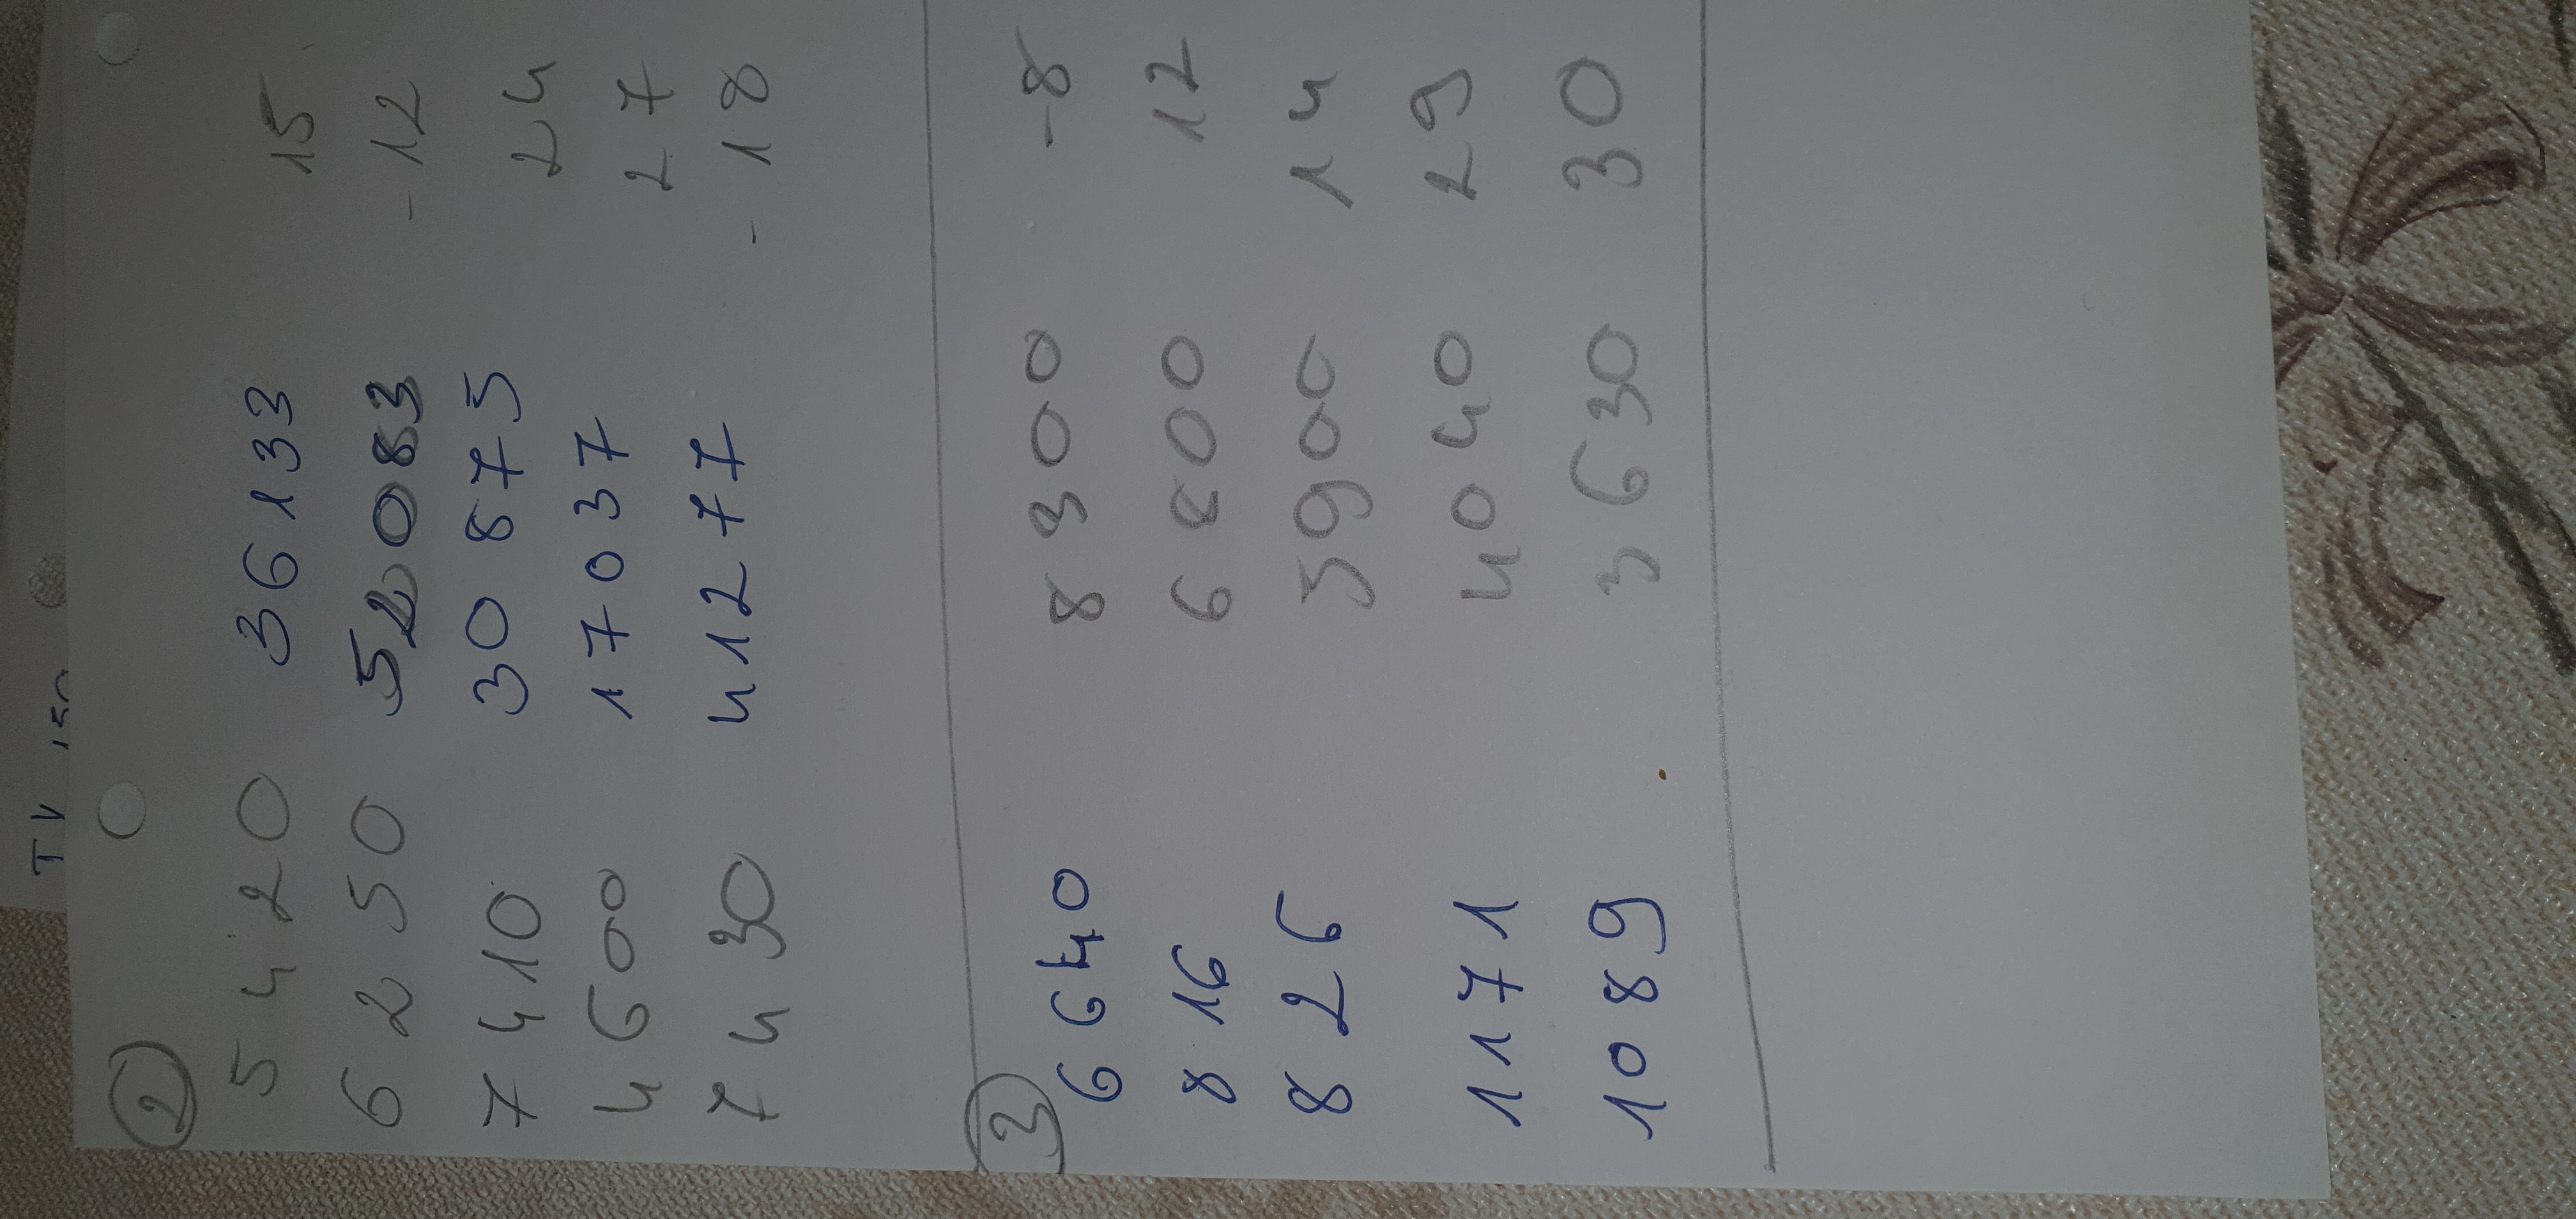 TV 150
2
5420 36133 15
6250 52083 -12
7410 30875 24
4600 17037 27
7430 41277 -18
3
6640 8300 -8
816 6800 12
826 5900 14
1171 4040 29
1089 3630 30